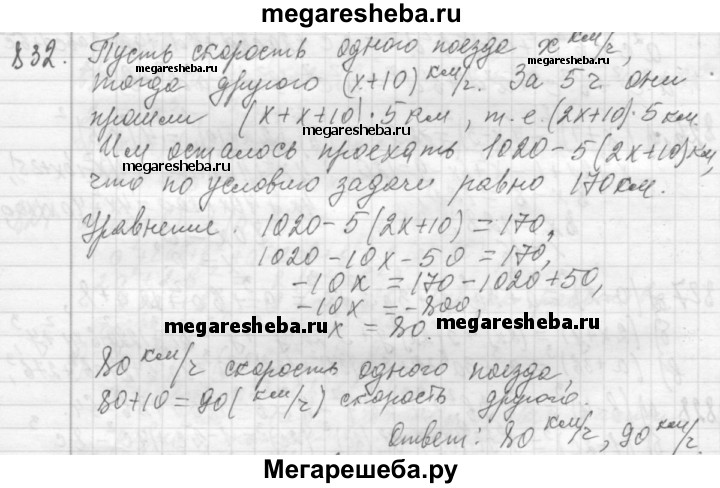 megaresheba.ru
832. Пусть скорость одного поезда x км/ч,
megaresheba.ru megaresheba.ru
тогда другого (x+10) км/ч. За 5 ч они
прошли (x+x+10)·5 км, т.е. (2x+10)·5 км.
megaresheba.ru
Им осталось проехать 1020-5(2x+10)км,
что по условию задачи равно 170 км.
Уравнение. 1020-5(2x+10)=170,
1020-10x-50=170,
-10x=170-1020+50,
-10x=-800,
megaresheba.ru megaresheba.ru
x=80.
80 км/ч скорость одного поезда,
80+10=90(км/ч) скорость другого.
Ответ: 80 км/ч, 90 км/ч.
Мегарешеба.ру